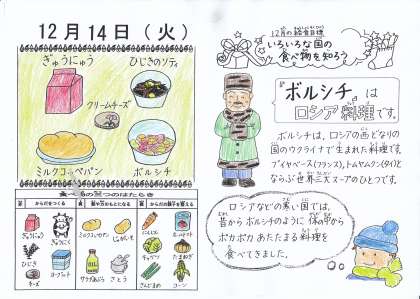 12月14日（火）
ぎゅうにゅう
ひじきのソテー
クリームチーズ
ミルクコッペパン
ボルシチ
食べもの
はたらき
からだをつくる
からだの調子を整える
ぎゅうにゅう
ミルクコッペパン
じゃがいも
にんじん
トマト
ひじき
キャベツ
たまねぎ
チーズ
サラダあぶら
さとう
さんどまめ
コーン
12月の給食目標
いろいろな国の
食べ物を知ろう
『ボルシチ』は
ロシア料理です。
ボルシチは、ロシアの西どなりの
国のウクライナで生まれた料理です。
ブイヤベース(フランス)、トムヤムクン(タイ)と
ならぶ世界三大スープのひとつです。
ロシアなどの寒い国では、
昔からボルシチのように体の中から
ポカポカあたたまる料理を
食べてきました。